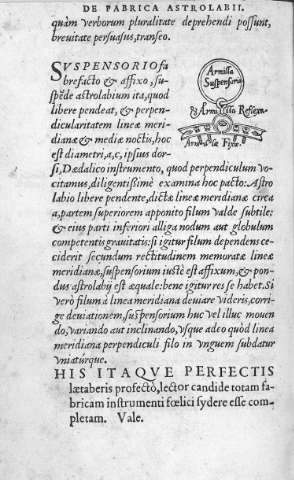 DE FABRICA ASTROLABII.
quàm verborum pluralitate deprehendi possunt,
breuitate persuasus, transeo.
SVSPENSORIO fa
brefacto & affixo, su-
spēde astrolabium ita, quod
libere pendeat, & perpen-
dicularitatem lineæ meri-
dianæ & mediæ noctis, hoc
est diametri, a, c, ipsius dor-
si, Dædalico instrumento, quod perpendiculum vo-
citamus, diligentissimè examina hoc pacto. Astro
labio libere pendente, dictæ lineæ meridianæ circa
a, partem superiorem apponito filum valde subtile:
& eius parti inferiori alliga nodum aut globulum
competentis grauitatis: si igitur filum dependens ce-
ciderit secundum rectitudinem memoratæ lineæ
meridianæ, suspensorium iustè est affixum, & pon-
dus astrolabij est æquale: bene igitur res se habet. Si
verò filum à linea meridiana deuiare videris, corri-
ge deuiationem, suspensorium huc vel illuc mouen
do, variando aut inclinando, vsque adeo quòd linea
meridiana perpendiculi filo in vnguem subdatur
vniaturque.
HIS ITAQVE PERFECTIS
lætaberis profectò, lector candide totam fa-
bricam instrumenti fœlici sydere esse com-
pletam. Vale.
Armilla
Suspensoria
Armilla Reflexa
Armilla Fixa